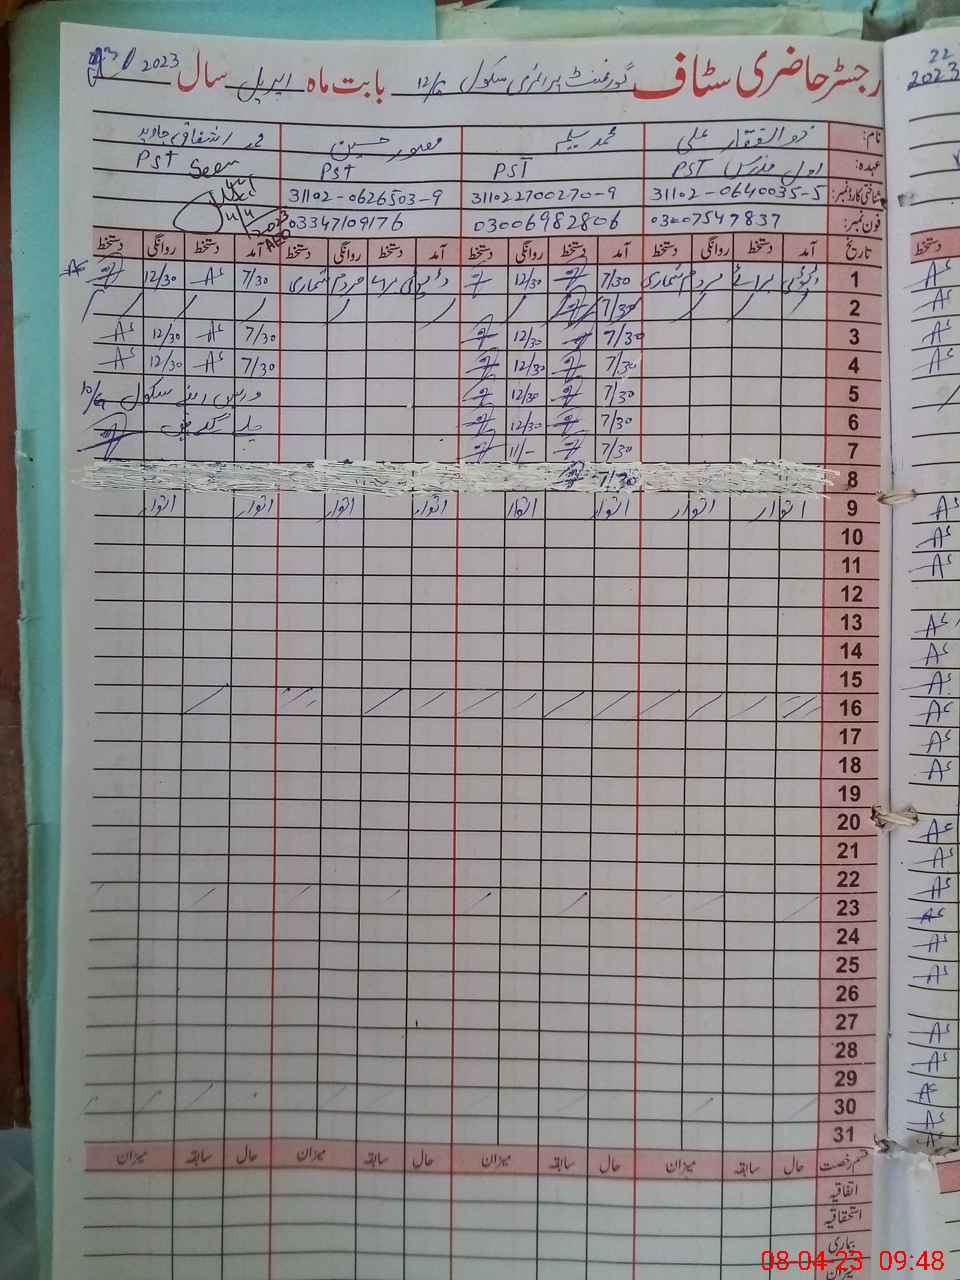 رجسٹر حاضری سٹاف گورنمنٹ پرائمری سکول بابت ماہ اپریل سال 2023
2023
نام: ذوالفقار علی محمد سلیم منصور حسین محمد اشفاق جاوید
عہدہ: اول مدرس PST PST PST PST
Seen
شناختی کارڈ نمبر: 31102-0640035-5 311022700270-9 31102-0626503-9
فون نمبر: 03007547837 03006982806 03347109176
2023 AEO
تاریخ آمد دستخط روانگی دستخط آمد دستخط روانگی دستخط آمد دستخط روانگی دستخط آمد دستخط روانگی دستخط
دستخط
1 ڈیوٹی برائے مردم شماری 7/30 12/30 ڈیوٹی برائے مردم شماری 7/30 12/30
2 7/30
3 7/30 12/30 7/30 12/30
4 7/30 12/30 7/30 12/30
5 7/30 12/30 واپس اپنے سکول
6 7/30 12/30 چلے گئے
7 7/30 11/-
8 7/30
9 اتوار اتوار اتوار اتوار اتوار اتوار اتوار اتوار
10
11
12
13
14
15
16
17
18
19
20
21
22
23
24
25
26
27
28
29
30
31
قسم رخصت حال سابقہ میزان حال سابقہ میزان حال سابقہ میزان حال سابقہ میزان
اتفاقیہ
استحقاقیہ
بیماری
میزان
08-04-23 09:48